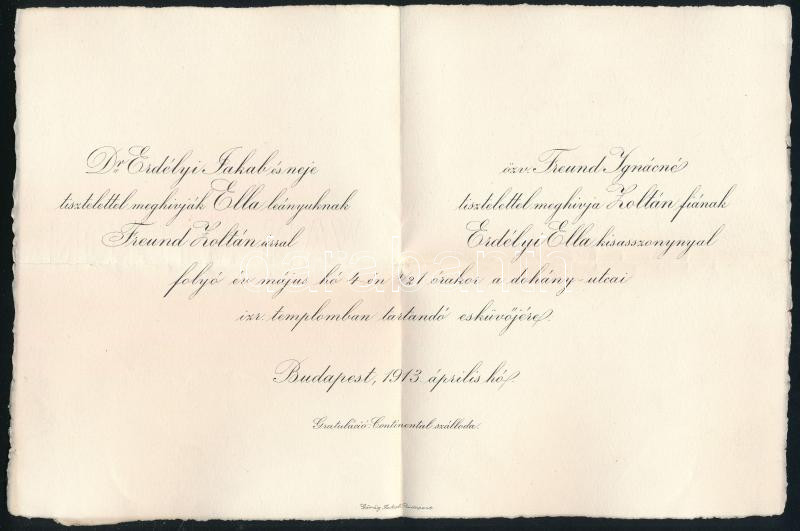 Dr Erdélyi Jakab és neje
tisztelettel meghívják Ella leányuknak
Freund Zoltán úrral
özv. Freund Ignácné
tisztelettel meghívja Zoltán fiának
Erdélyi Ella kisasszonynyal
folyó év május hó 4-én ½1 órakor a dohány-utcai
izr. templomban tartandó esküvőjére.
Budapest, 1913. április hó.
Gratuláció: Continental szálloda.
Budapest